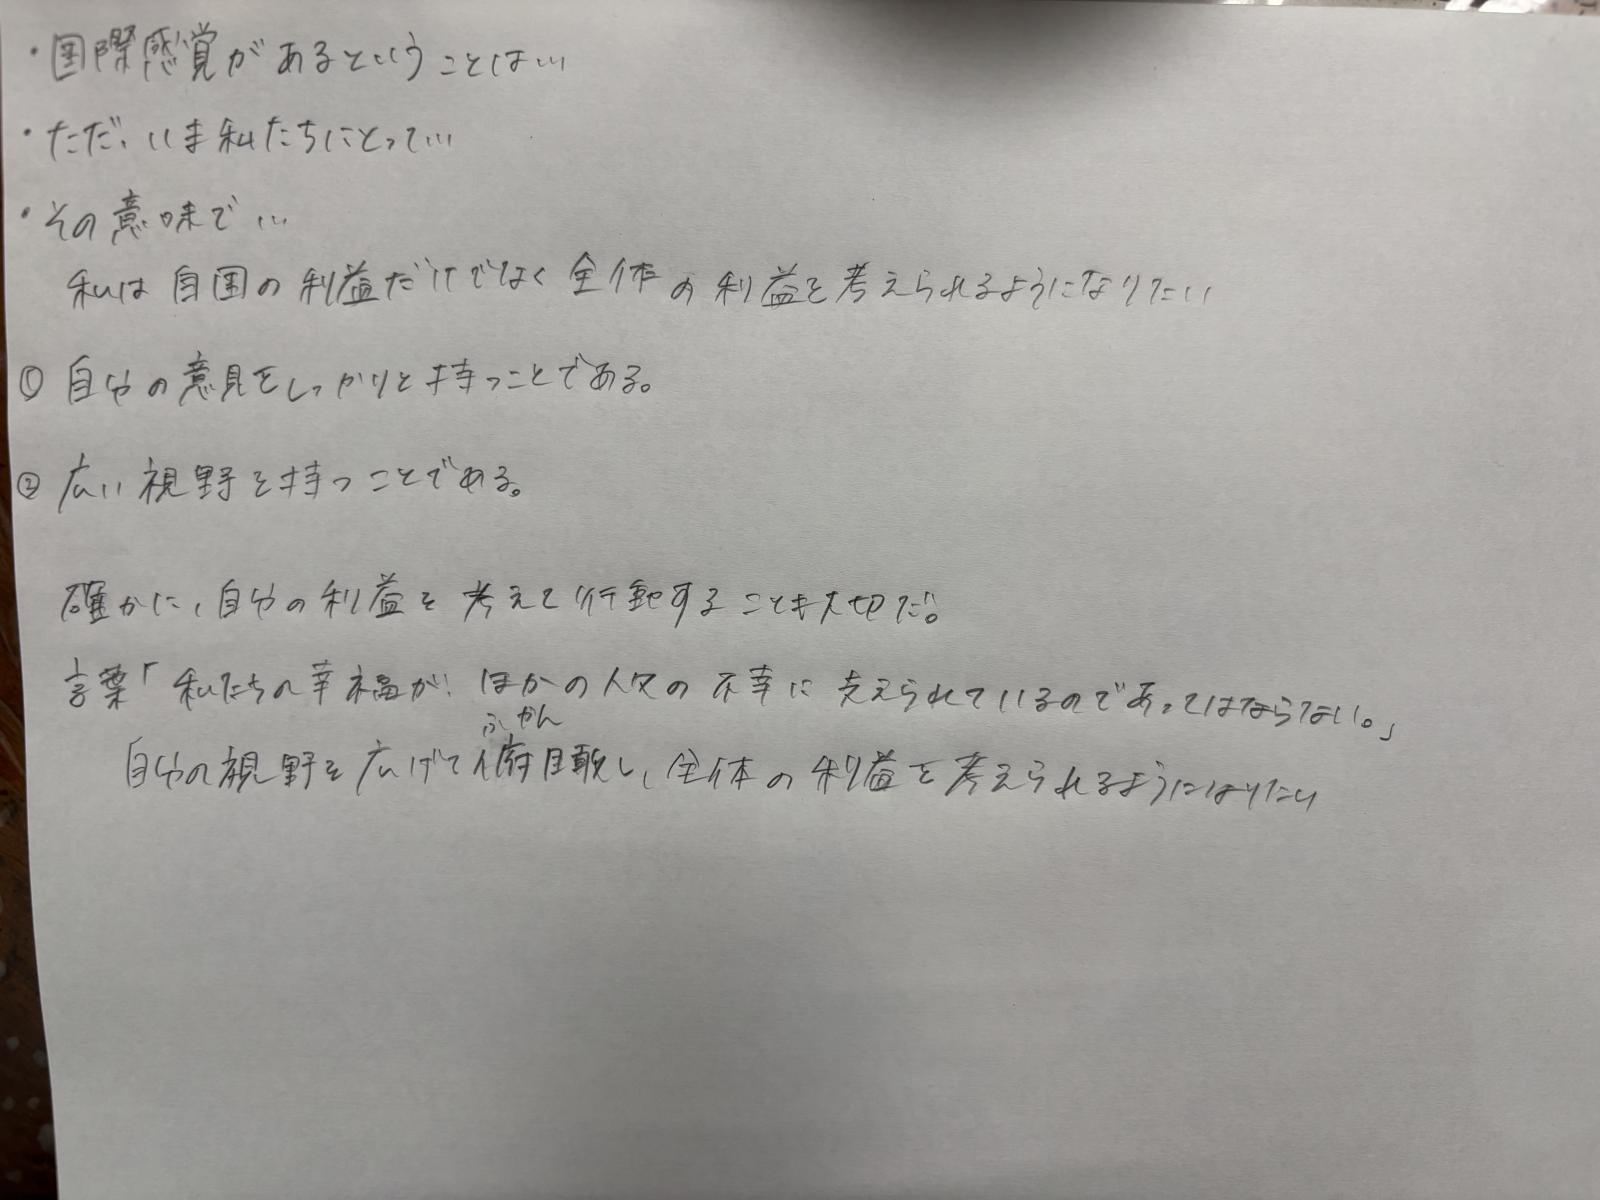 ・国際感覚があるということは…
・ただ、いま私たちにとって…
・その意味で…
私は自国の利益だけでなく全体の利益を考えられるようになりたい
① 自分の意見をしっかりと持つことである。
② 広い視野を持つことである。
確かに、自分の利益を考えて行動することも大切だ。
言葉「私たちの幸福が、ほかの人々の不幸に支えられているのであってはならない。」
ふかん
自分の視野を広げて俯瞰し、全体の利益を考えられるようになりたい